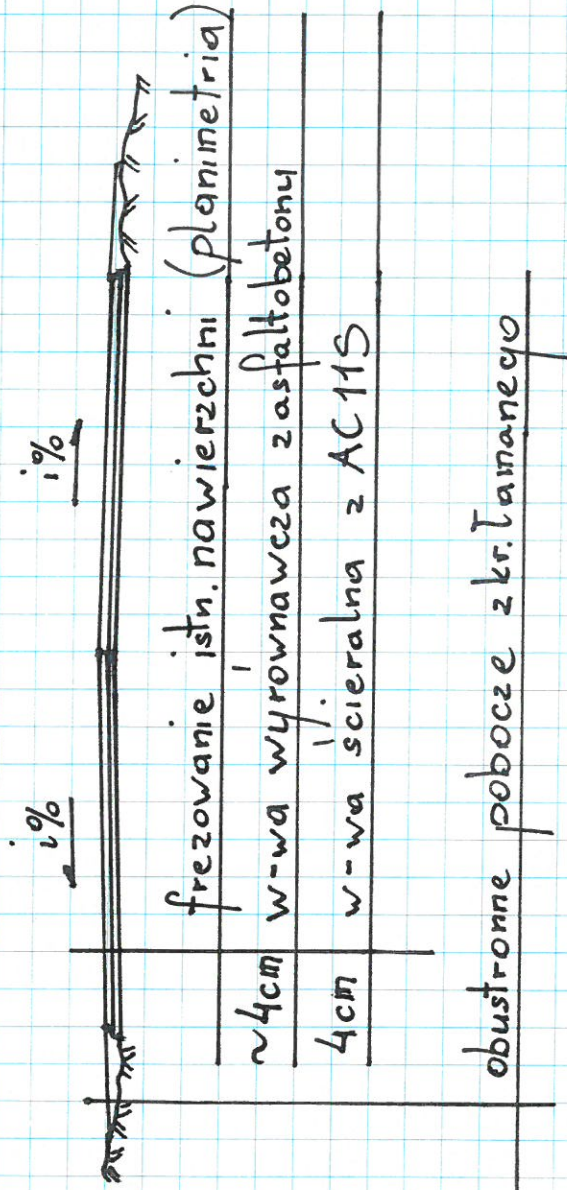 i% i%
frezowanie istn. nawierzchni (planimetria)
~4cm w-wa wyrównawcza z asfaltobetonu
4cm w-wa ścieralna z AC 11S
obustronne pobocze z kr. łamanego